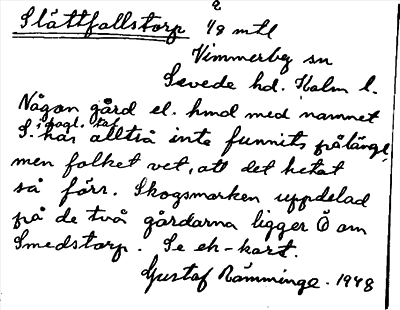 Slättfallstorp 1/8 mtl
Vimmerby sn
Sevede hd. Kalm l.
Någon gård el. hmd med namnet
S. i dagl. tal
har alltså inte funnits på länge,
men folket vet, att det hetat
så förr. Skogsmarken uppdelad
på de två gårdarna ligger Ö om
Smedstorp. Se ek-kart.
Gustaf Rämminge. 1948